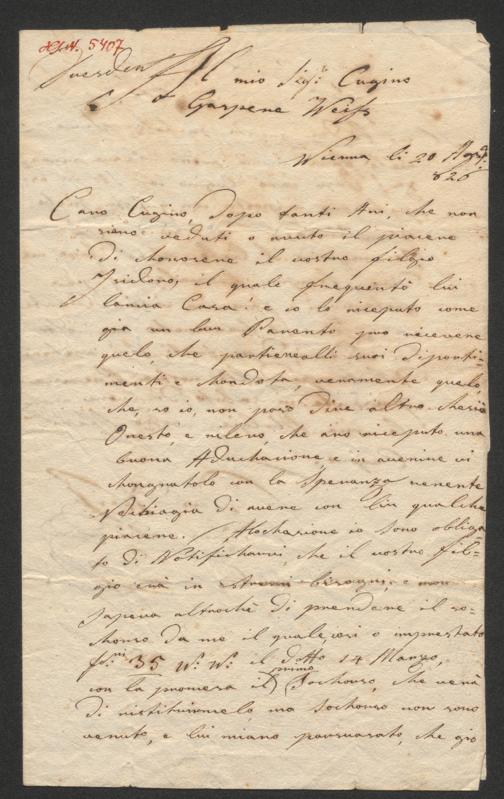 H.I.N. 5407
Dresden Al mio Sigr: Cugino
Gaspene Weiss
Vienna li 20 Ags:
826
Caro Cugino, Dopo tanti Ani, che non
sieno veduti o avuto il piacere
di Honorene il vostro filgio
Isidono, il quale frequentò lui
la mia Casa: e io lo niceputo come
gia un buon Panento può nicevene
quelo, che partiene alli suoi diponti-
menti e Chondota, venamente quelo,
che, so io, non poso dire altro che
Onesto, e nileno, che ano niceputo una
buona Aduchasione e in avenine vi
con la Spenanza
di avene con lui qualche
piacene. io sono obliga
to di Notifichanvi, che il vostro fil-
gio enà in stremi bisogni, e non
sapeva altnochè di prendene il so-
chonso da me il quale, inprestato
fni 35 W: W: il dtto 14 Manzo,
con la promesa il primo Sochonso, che venà
di nistituinmelo, ma sochonso non sono
venuto, e lui miano pansuasato, che già